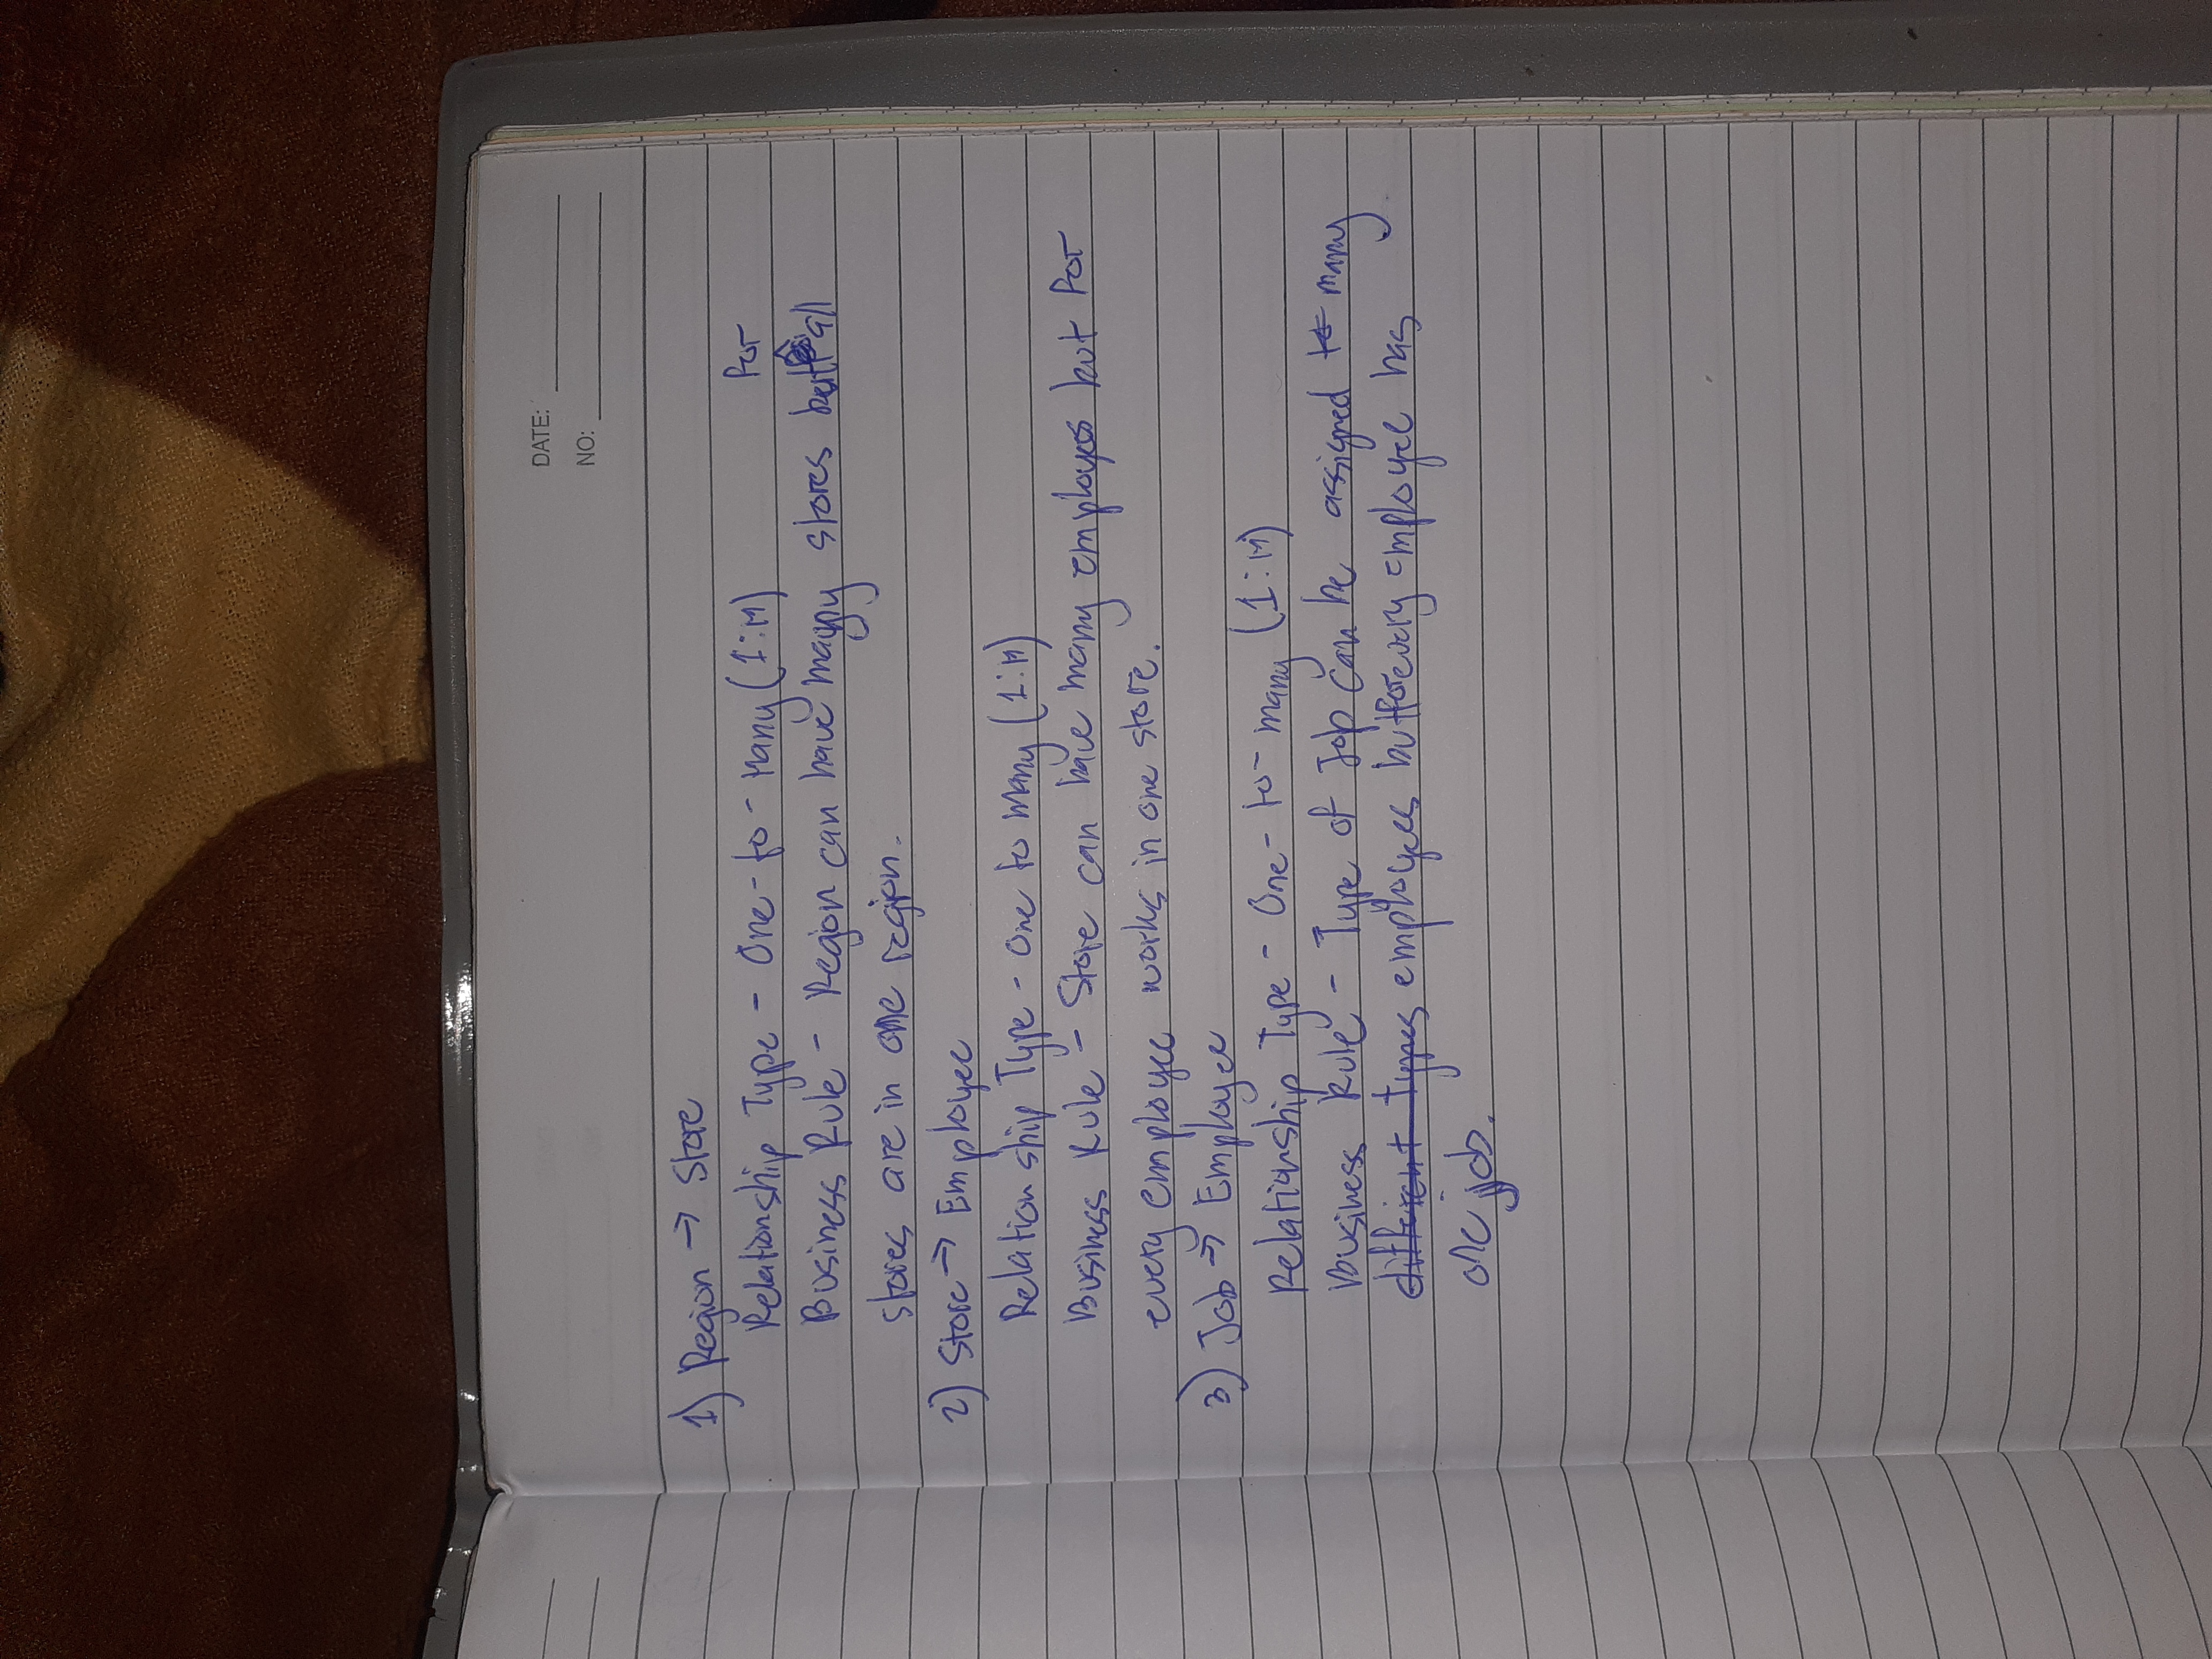 DATE:
NO:
1) Region → Store
Relationship Type - One-to-Many (1:M)
for
Business Rule - Region can have many stores but all
stores are in one region.
2) Store → Employee
Relationship Type - One to Many (1:M)
Business Rule - Store can have many employes but for
every employee works in one store.
3) Job → Employee
Relationship Type - One-to-many (1:M)
Business Rule - Type of Job can be assigned to many
different types employees but for every employee has
one job.